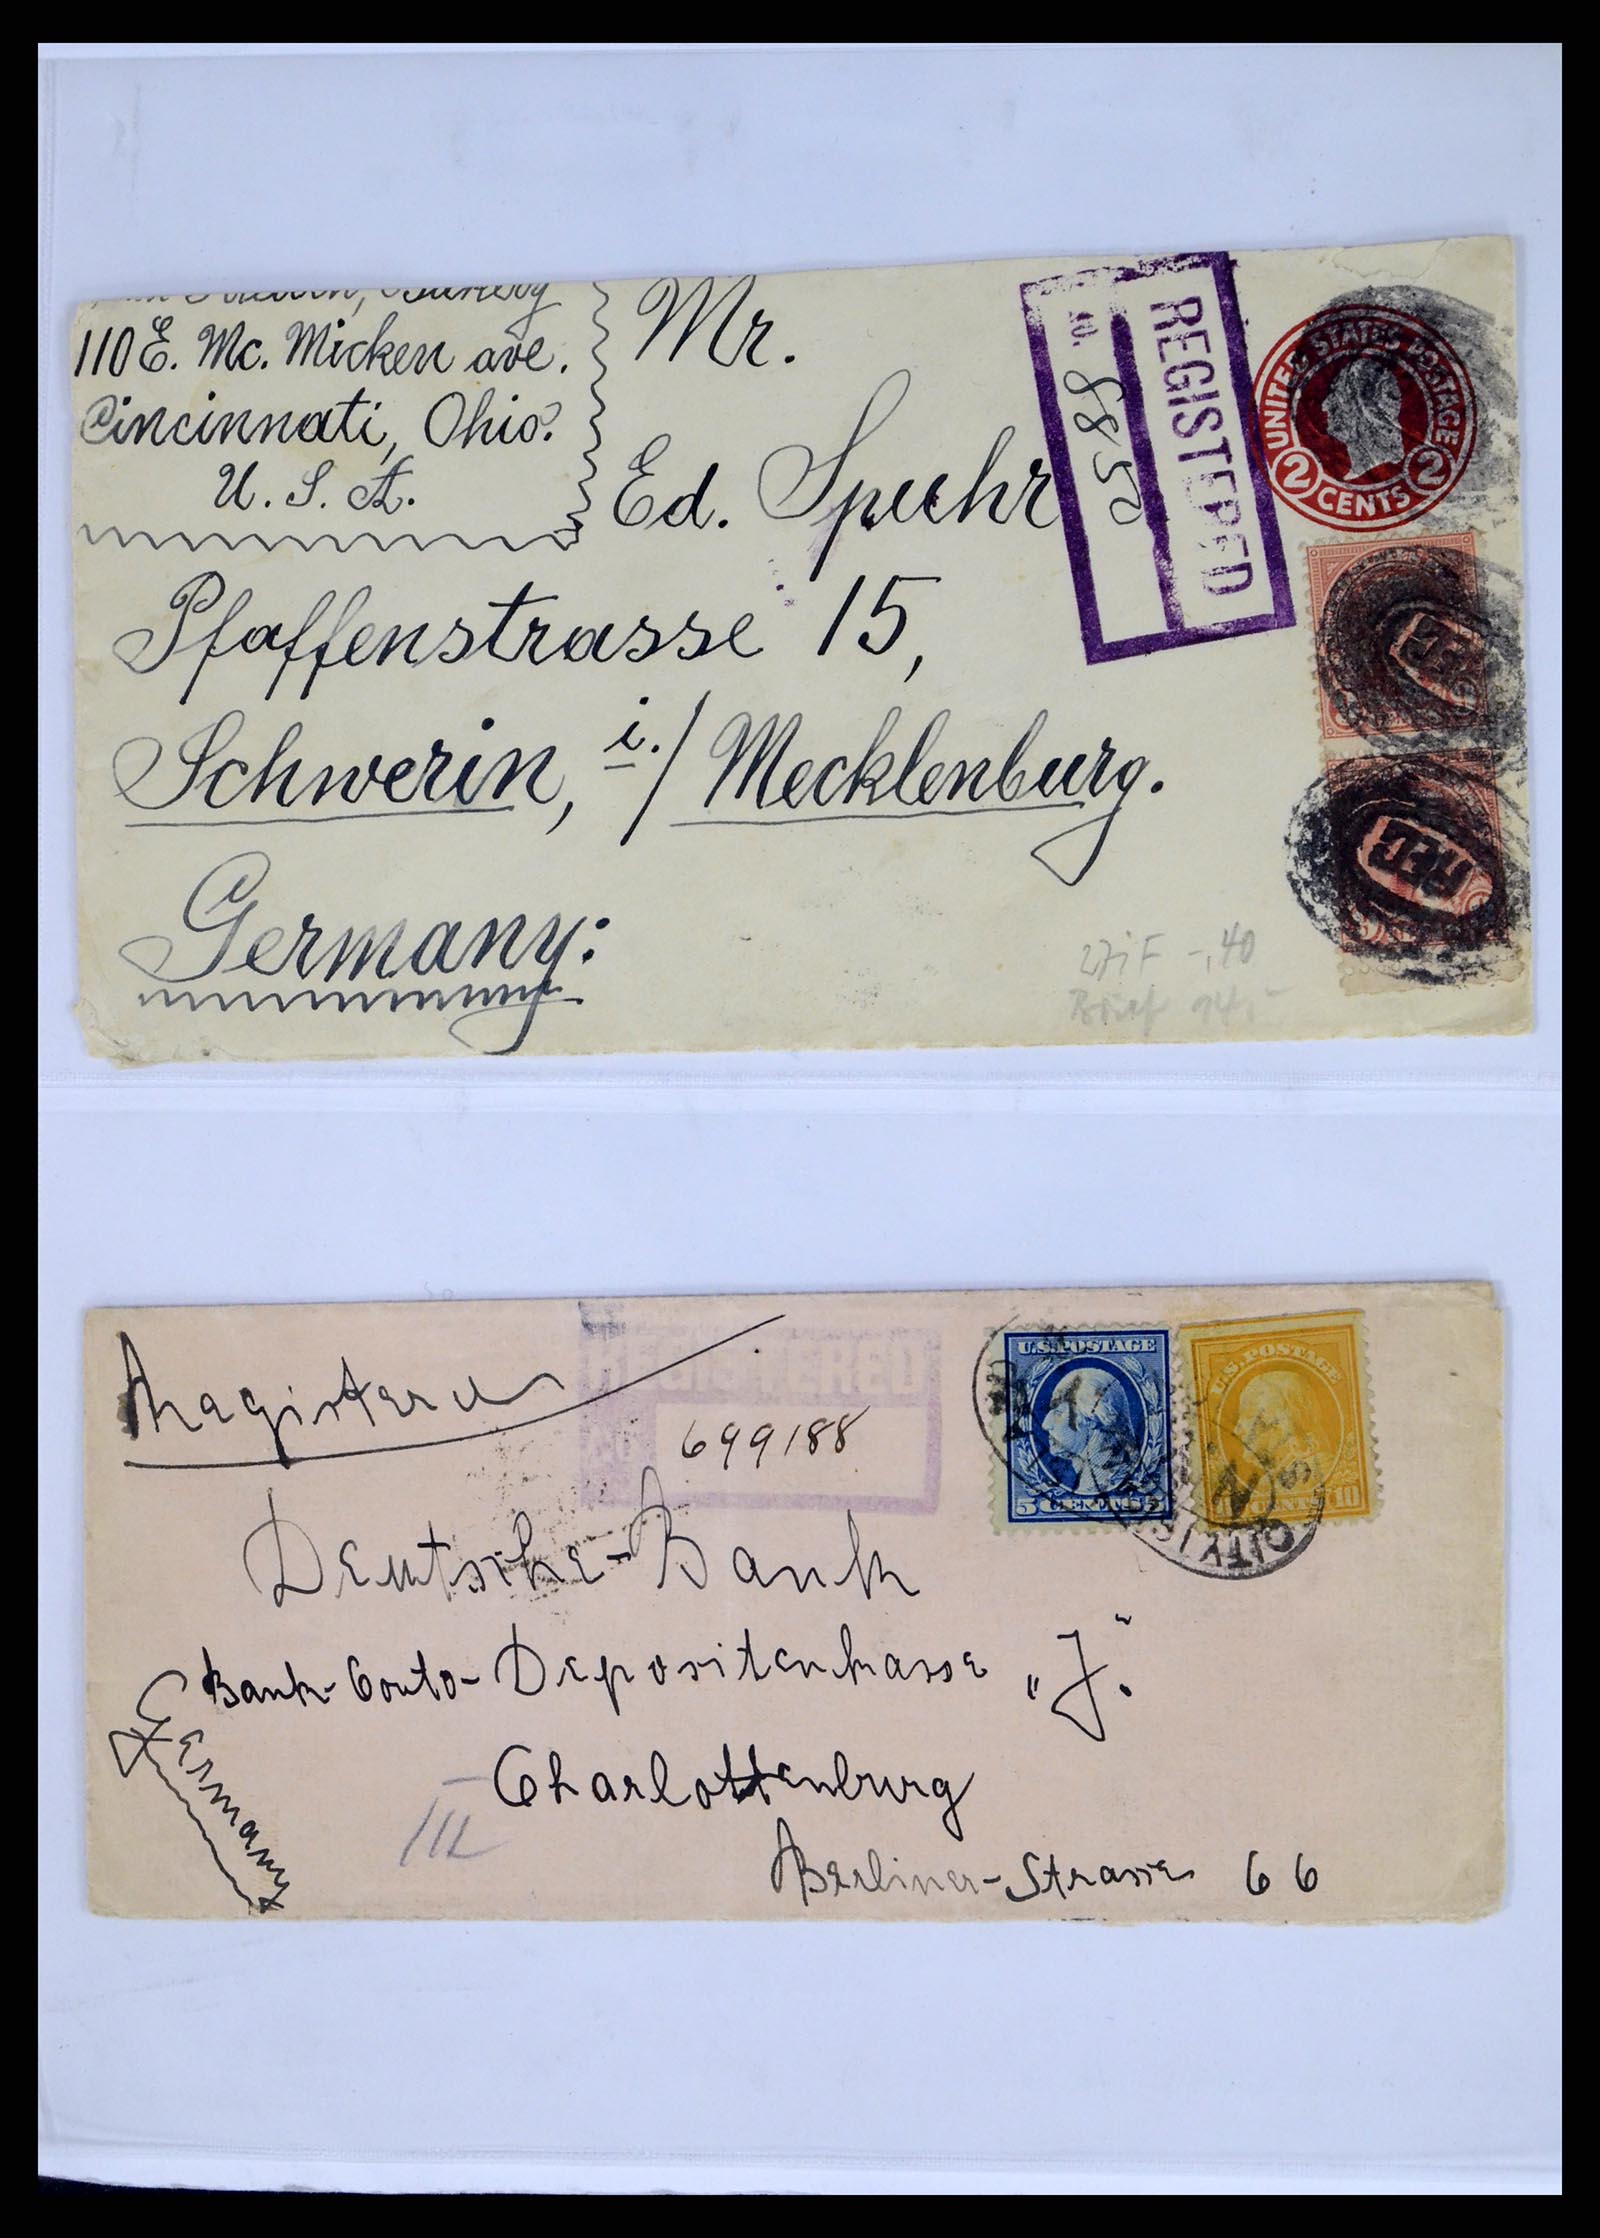 110 E. Mc. Micken ave.
Cincinnati, Ohio.
U. S. A.
Mr.
Ed. Spuhr
Pfaffenstrasse 15,
Schwerin, i./Mecklenburg.
Germany:
REGISTERED
No. 2588
UNITED STATES POSTAGE
2 CENTS 2
REG
REG
-,40
Brief 14,-
REGISTERED
No. 699188
U.S. POSTAGE
5 CENTS 5
U.S. POSTAGE
10 CENTS 10
CITY
Deutsche-Bank
Bank-Conto-Depositenkasse „J."
Charlottenburg
Berliner-Strasse 66
Germany
III